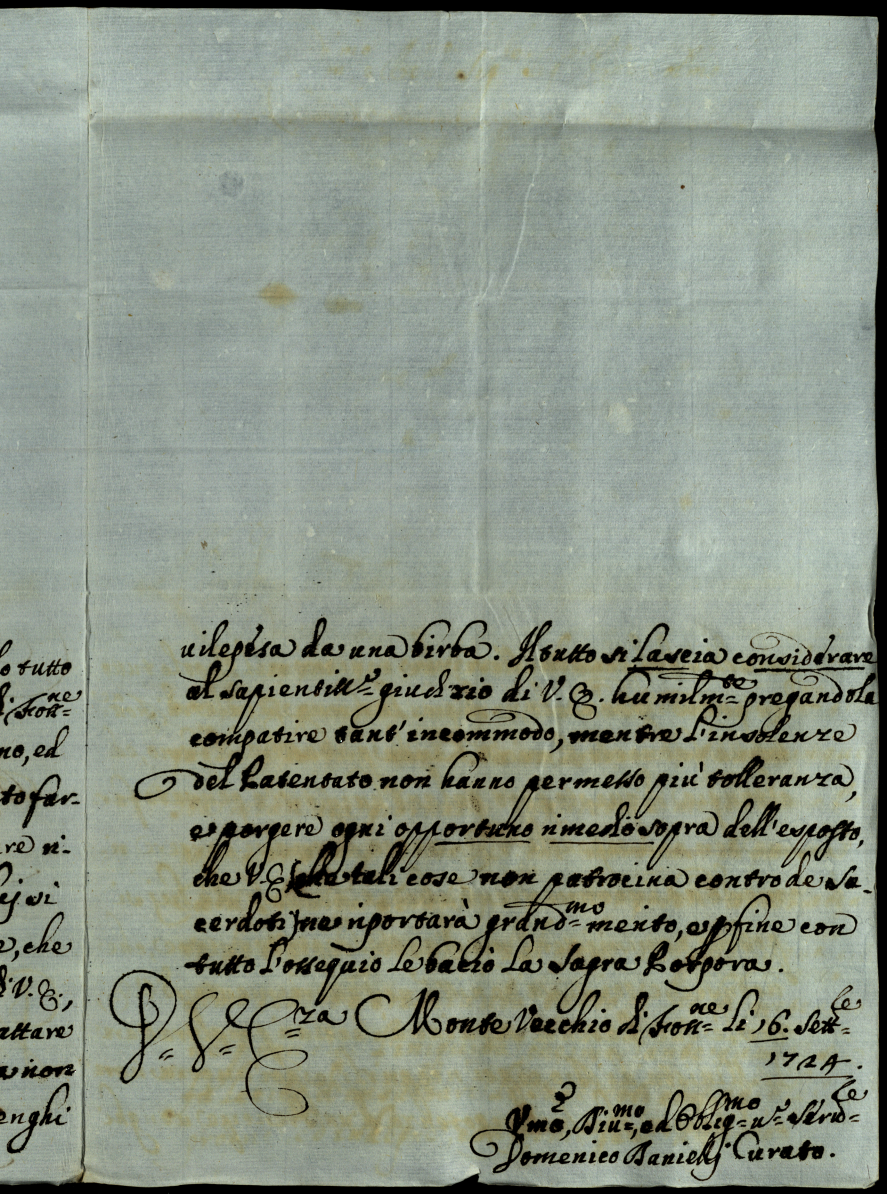 o tutto
di Fosso:ne
no, ed
to far-
re ri-
si
e, che
di V. E.,
attare
a non
enghi
uilepesa da una birba. Il tutto si lascia considerare
al sapientiss:o giudizio di V. E. humilm:te pregandola
compatire tant' incommodo, mentre l'insolenze
del Patentato non hanno permesso più tolleranza,
e porgere ogni opportuno rimedio sopra dell'esposto,
che V. E. (che tali cose non patrocina contro de Sa-
cerdoti) ne riportarà grand:mo merito, e p fine con
tutto l'ossequio le bacio la Sagra Porpora.
D. V. E:za Monte Vecchio di Foss:ne li 16. Sett:le
1724.
Vmo, Diu:mo, ed Oblig:mo Serid:le
Domenico Danielij Curato.